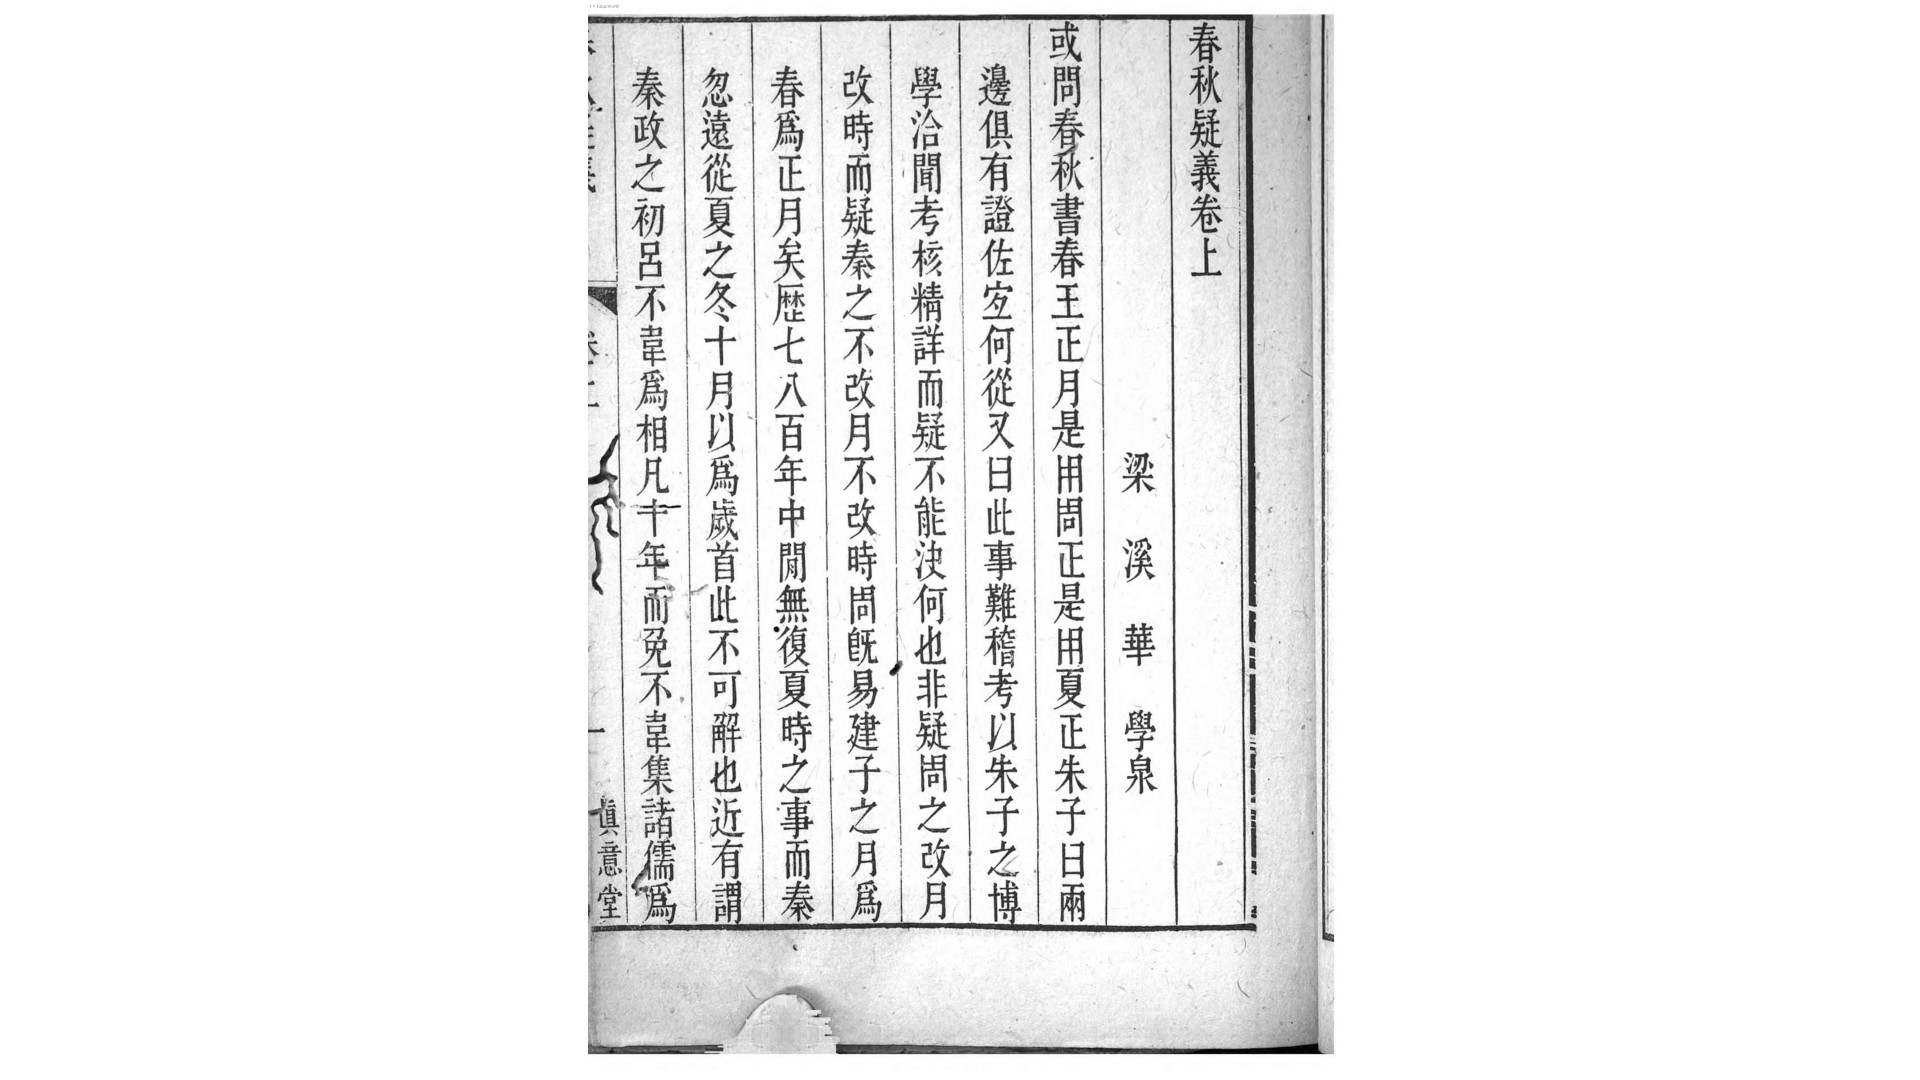 春秋疑義卷上
梁溪華學泉
或問春秋書春王正月是用周正是用夏正朱子曰兩
邊俱有證佐宐何從又曰此事難稽考以朱子之博
學洽聞考核精詳而疑不能決何也非疑周之改月
改時而疑秦之不改月不改時周旣易建子之月爲
春爲正月矣歴七八百年中閒無復夏時之事而秦
忽遠從夏之冬十月以爲歲首此不可解也近有謂
秦政之初呂不韋爲相凡十年而免不韋集諸儒爲
卷上
一
眞意堂